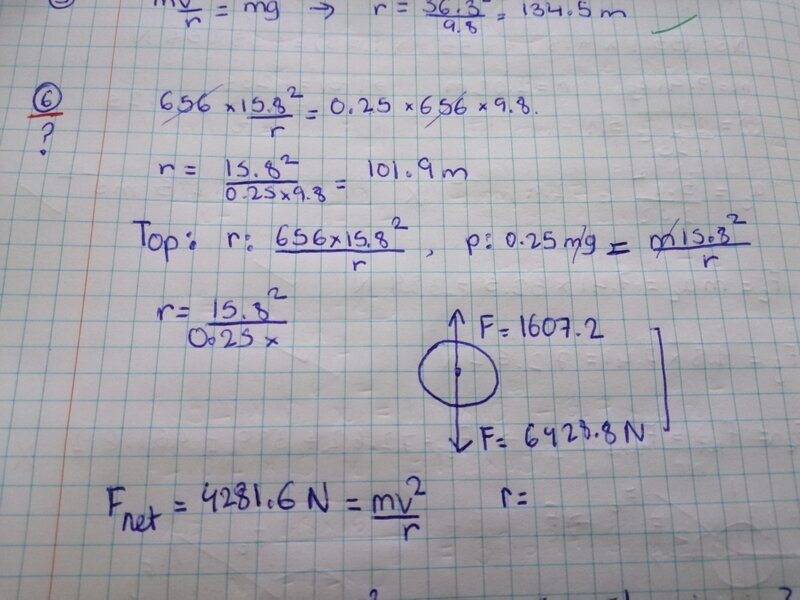 mv/r = mg → r = 36.3²/9.8 = 134.5 m
⑥ 656 × 15.8²/r = 0.25 × 656 × 9.8.
?
r = 15.8²/0.25×9.8 = 101.9 m
Top: r: 656×15.8²/r , p: 0.25 mg = m15.8²/r
r = 15.8²/0.25 ×
F = 1607.2
F = 6428.8 N
Fnet = 4281.6 N = mv²/r r =